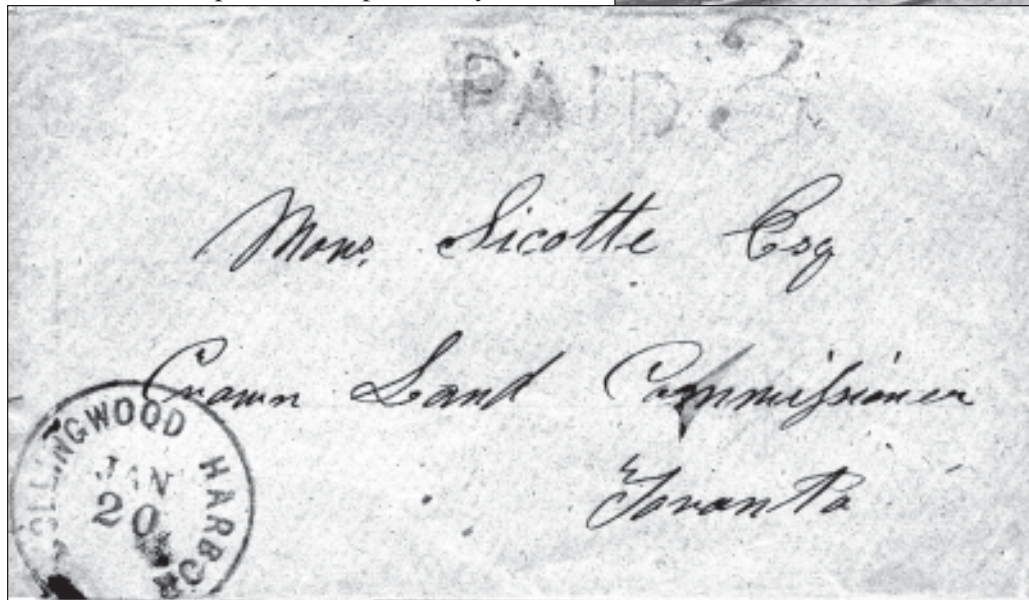 PAID 3
Mons. Sicotte Esq
Crown Land Commissioner
Toronto
COLLINGWOOD HARBO
JAN
20